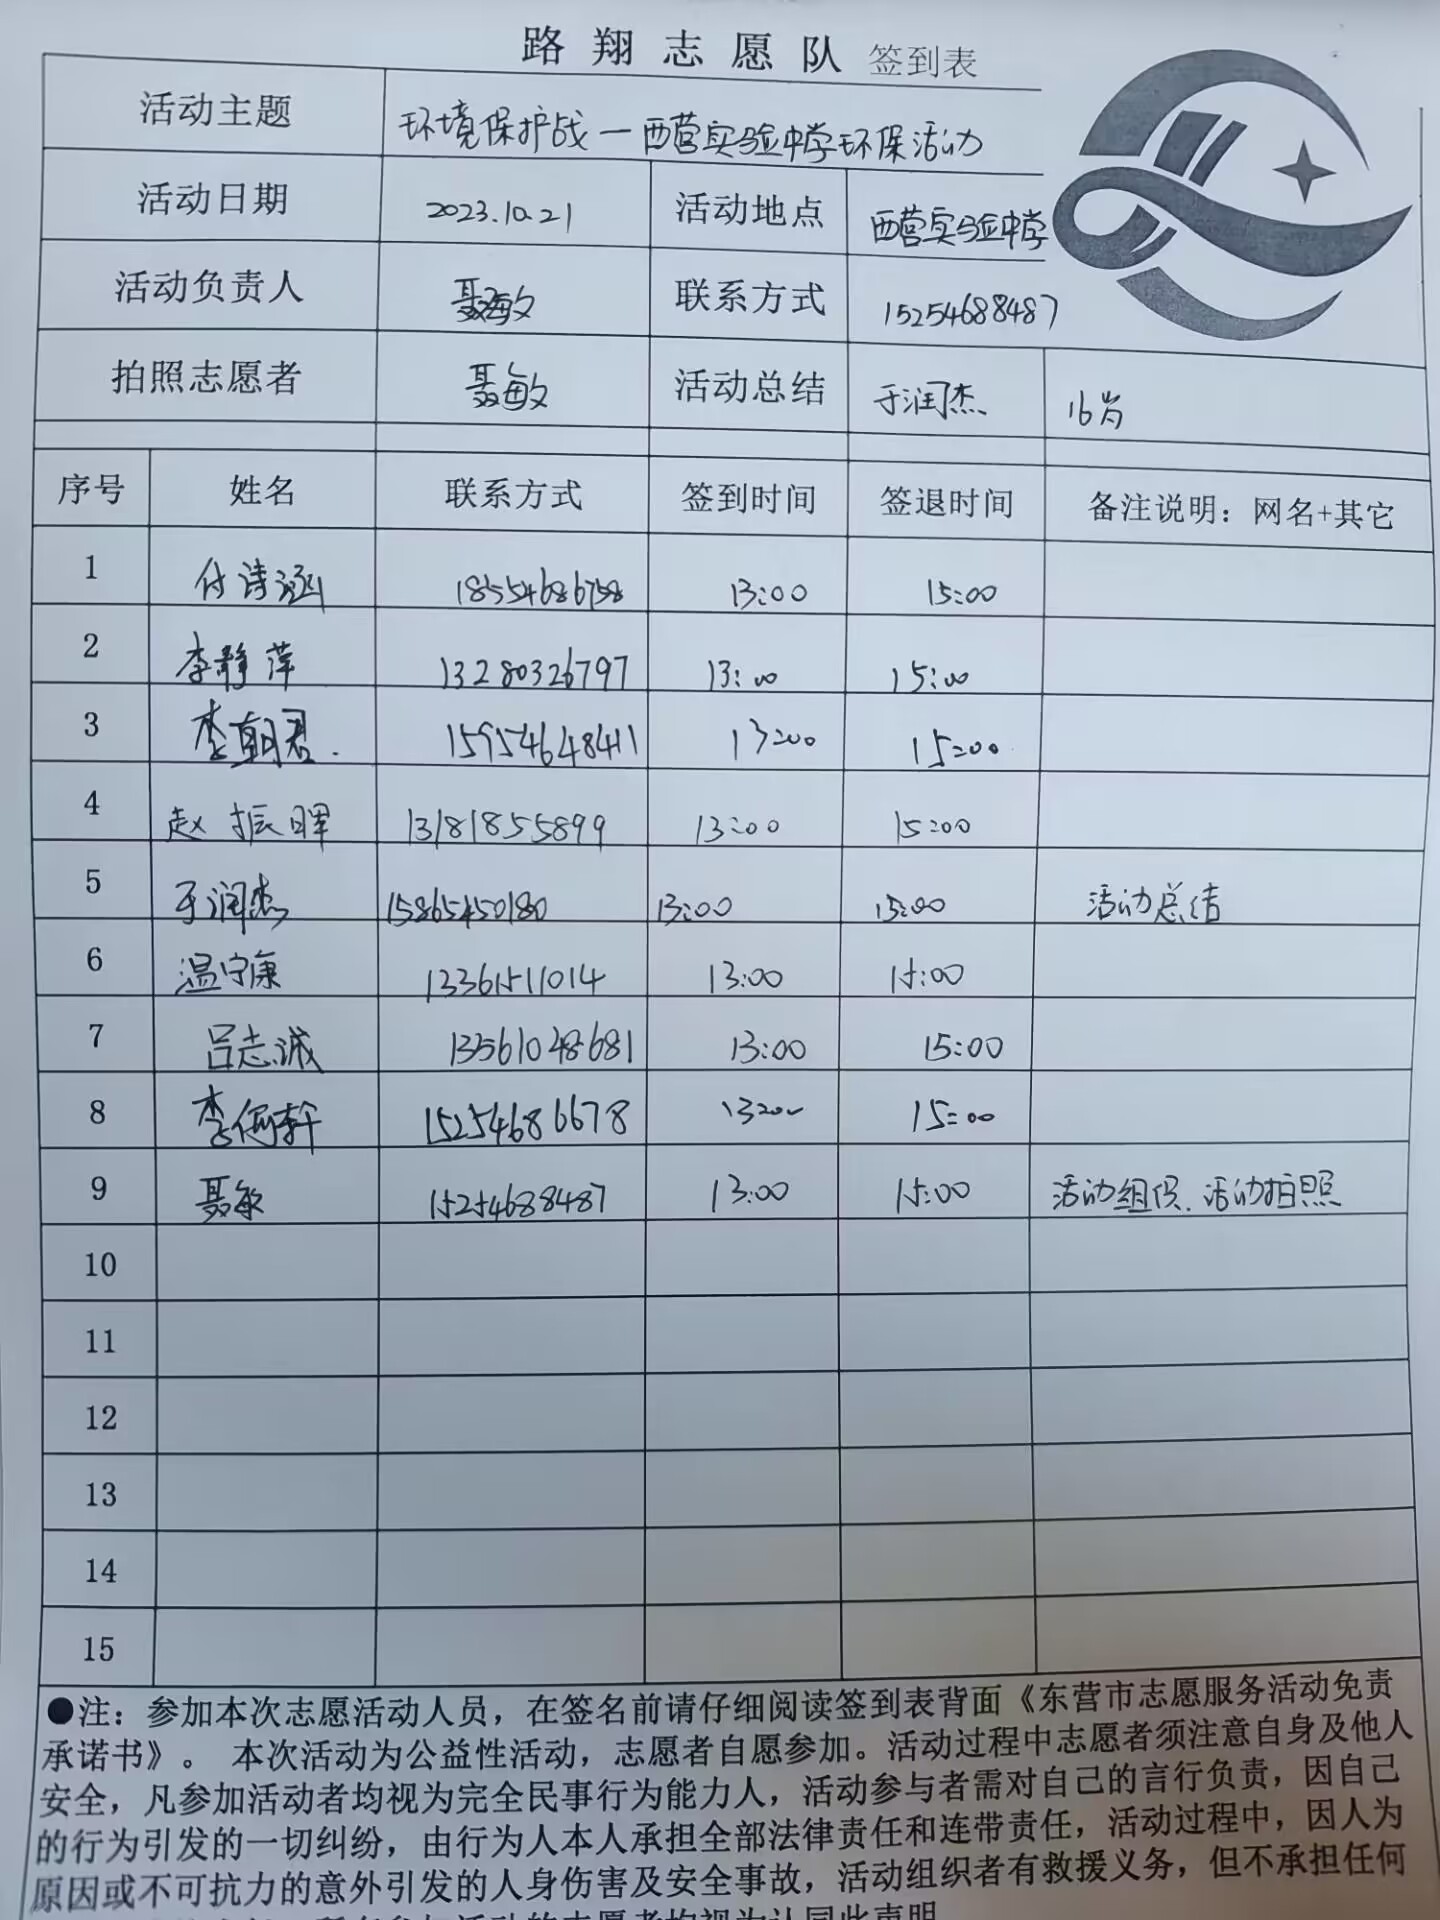 路翔志愿队 签到表
活动主题 环境保护战一西营实验中学环保活动
活动日期 2023.10.21 活动地点 西营实验中学
活动负责人 聂敏 联系方式 15254688487
拍照志愿者 聂敏 活动总结 于润杰 16岁
序号 姓名 联系方式 签到时间 签退时间 备注说明：网名+其它
1 付诗涵 18554686758 13:00 15:00
2 李静萍 13280326797 13:00 15:00
3 李朝君. 15954648411 13:00 15:00
4 赵振晖 13181855899 13:00 15:00
5 于润杰 15865450180 13:00 15:00 活动总结
6 温宁康 13361511014 13:00 15:00
7 吕志诚 13561048681 13:00 15:00
8 李何轩 15254686678 13:00 15:00
9 聂敏 15254688487 13:00 15:00 活动组织、活动拍照
10
11
12
13
14
15
●注：参加本次志愿活动人员，在签名前请仔细阅读签到表背面《东营市志愿服务活动免责
承诺书》。 本次活动为公益性活动，志愿者自愿参加。活动过程中志愿者须注意自身及他人
安全，凡参加活动者均视为完全民事行为能力人，活动参与者需对自己的言行负责，因自己
的行为引发的一切纠纷，由行为人本人承担全部法律责任和连带责任，活动过程中，因人为
原因或不可抗力的意外引发的人身伤害及安全事故，活动组织者有救援义务，但不承担任何
活动的志愿者均视为认同此声明